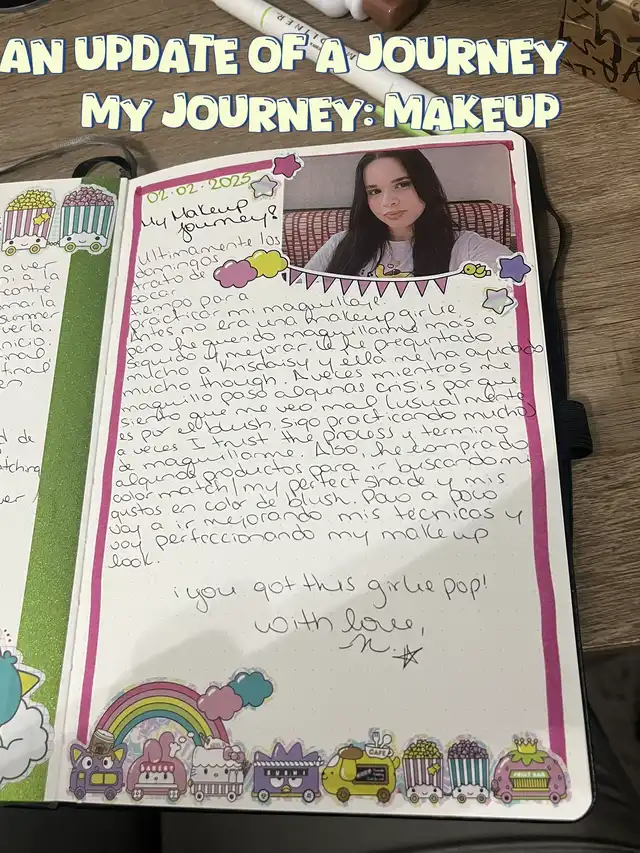 AN UPDATE OF A JOURNEY
MY JOURNEY: MAKEUP
02·02·2025
My Makeup
Journey
Ultimamente los
domingos
trato de
sacar
tiempo para
practicar mi maquillaje.
Antes no era una makeup girlie
pero he querido maquillarme más a
seguido y mejorar. Le he preguntado
mucho a Krisdaisy y ella me ha ayudado
mucho though. A veces mientras me
maquillo paso algunas crisis porque
siento que me veo mal (usualmente
es por el blush, sigo practicando mucho)
a veces I trust the process y termino
de maquillarme. Also, he comprado
algunos productos para ir buscando mi
color match/my perfect shade y mis
gustos en color de blush. Poco a poco
voy a ir mejorando mis técnicas y
voy perfeccionando my makeup
look.
¡you got this girlie pop!
with love,
BAKERY
CAFE
FRUIT BAR